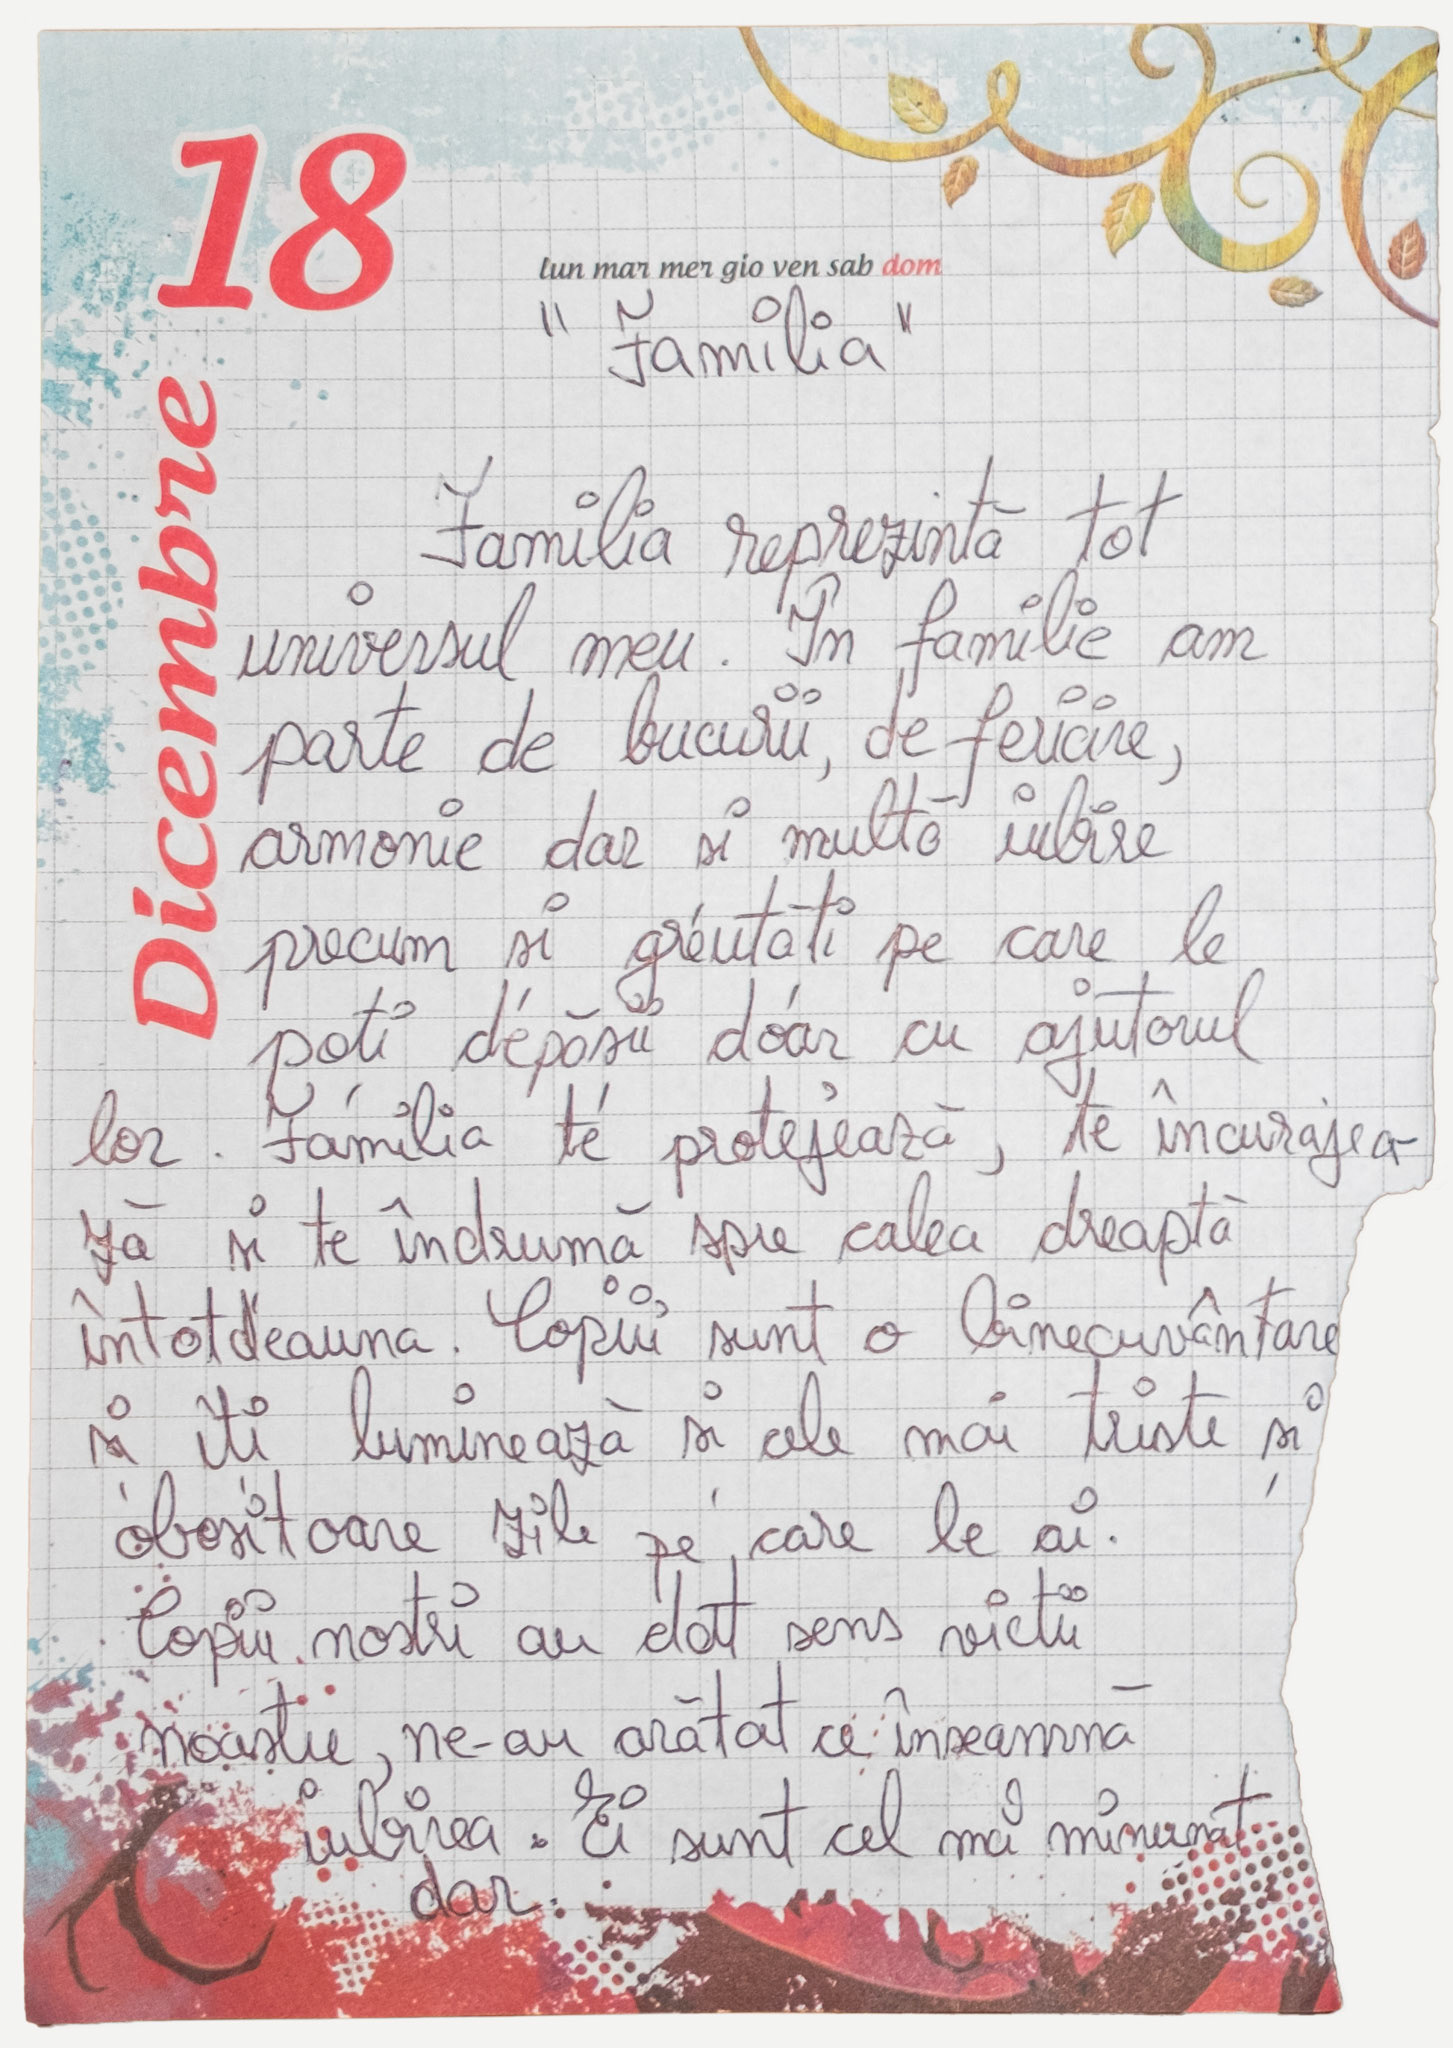 18
Dicembre
lun mar mer gio ven sab dom
"Familia"
Familia reprezintă tot
universul meu. În familie am
parte de bucurii, de fericire,
armonie dar si multă iubire
precum si greutăti pe care le
poti depăsii doar cu ajutorul
lor. Familia te protejează, te încurajea-
ză si te îndrumă spre calea dreaptă
întotdeauna. Copiii sunt o binecuvântare
si îti luminează si cele mai triste si
obositoare zile pe care le ai.
Copiii nostri au dat sens vietii
noastre, ne-au arătat ce înseamnă
iubirea. Ei sunt cel mai minunat
dar.